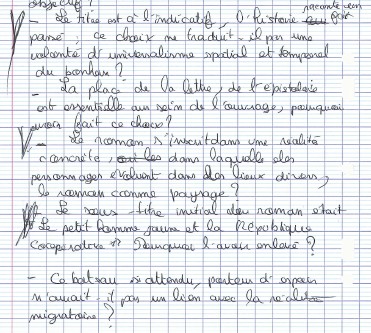 objectif ?
- Le titre est à l'indicatif, l'histoire raconte un fait
passé, ce choix ne traduit-il pas une
volonté d'universalisme spatial et temporel
du bonheur ?
- La place de la lettre, de l'épistolaire
est essentielle au sein de l'ouvrage, pourquoi
avoir fait ce choix ?
- Le roman s'inscrit dans une réalité
concrète, dans laquelle des
personnages évoluent dans des lieux divers,
le roman comme paysage ?
Le sous-titre initial du roman était
Le petit homme jaune et la République
coopérative Pourquoi l'avoir enlevé ?
- Ce bateau si attendu, porteur d'espoir
n'aurait-il pas un lien avec la réalité
migratoire ?